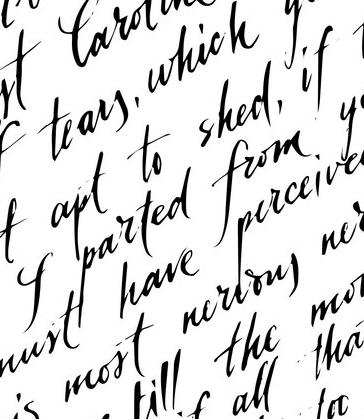 Caroline
of tears, which
t apt to shed, if
I parted from
must have perceive
is most nervous
till the
if all tha